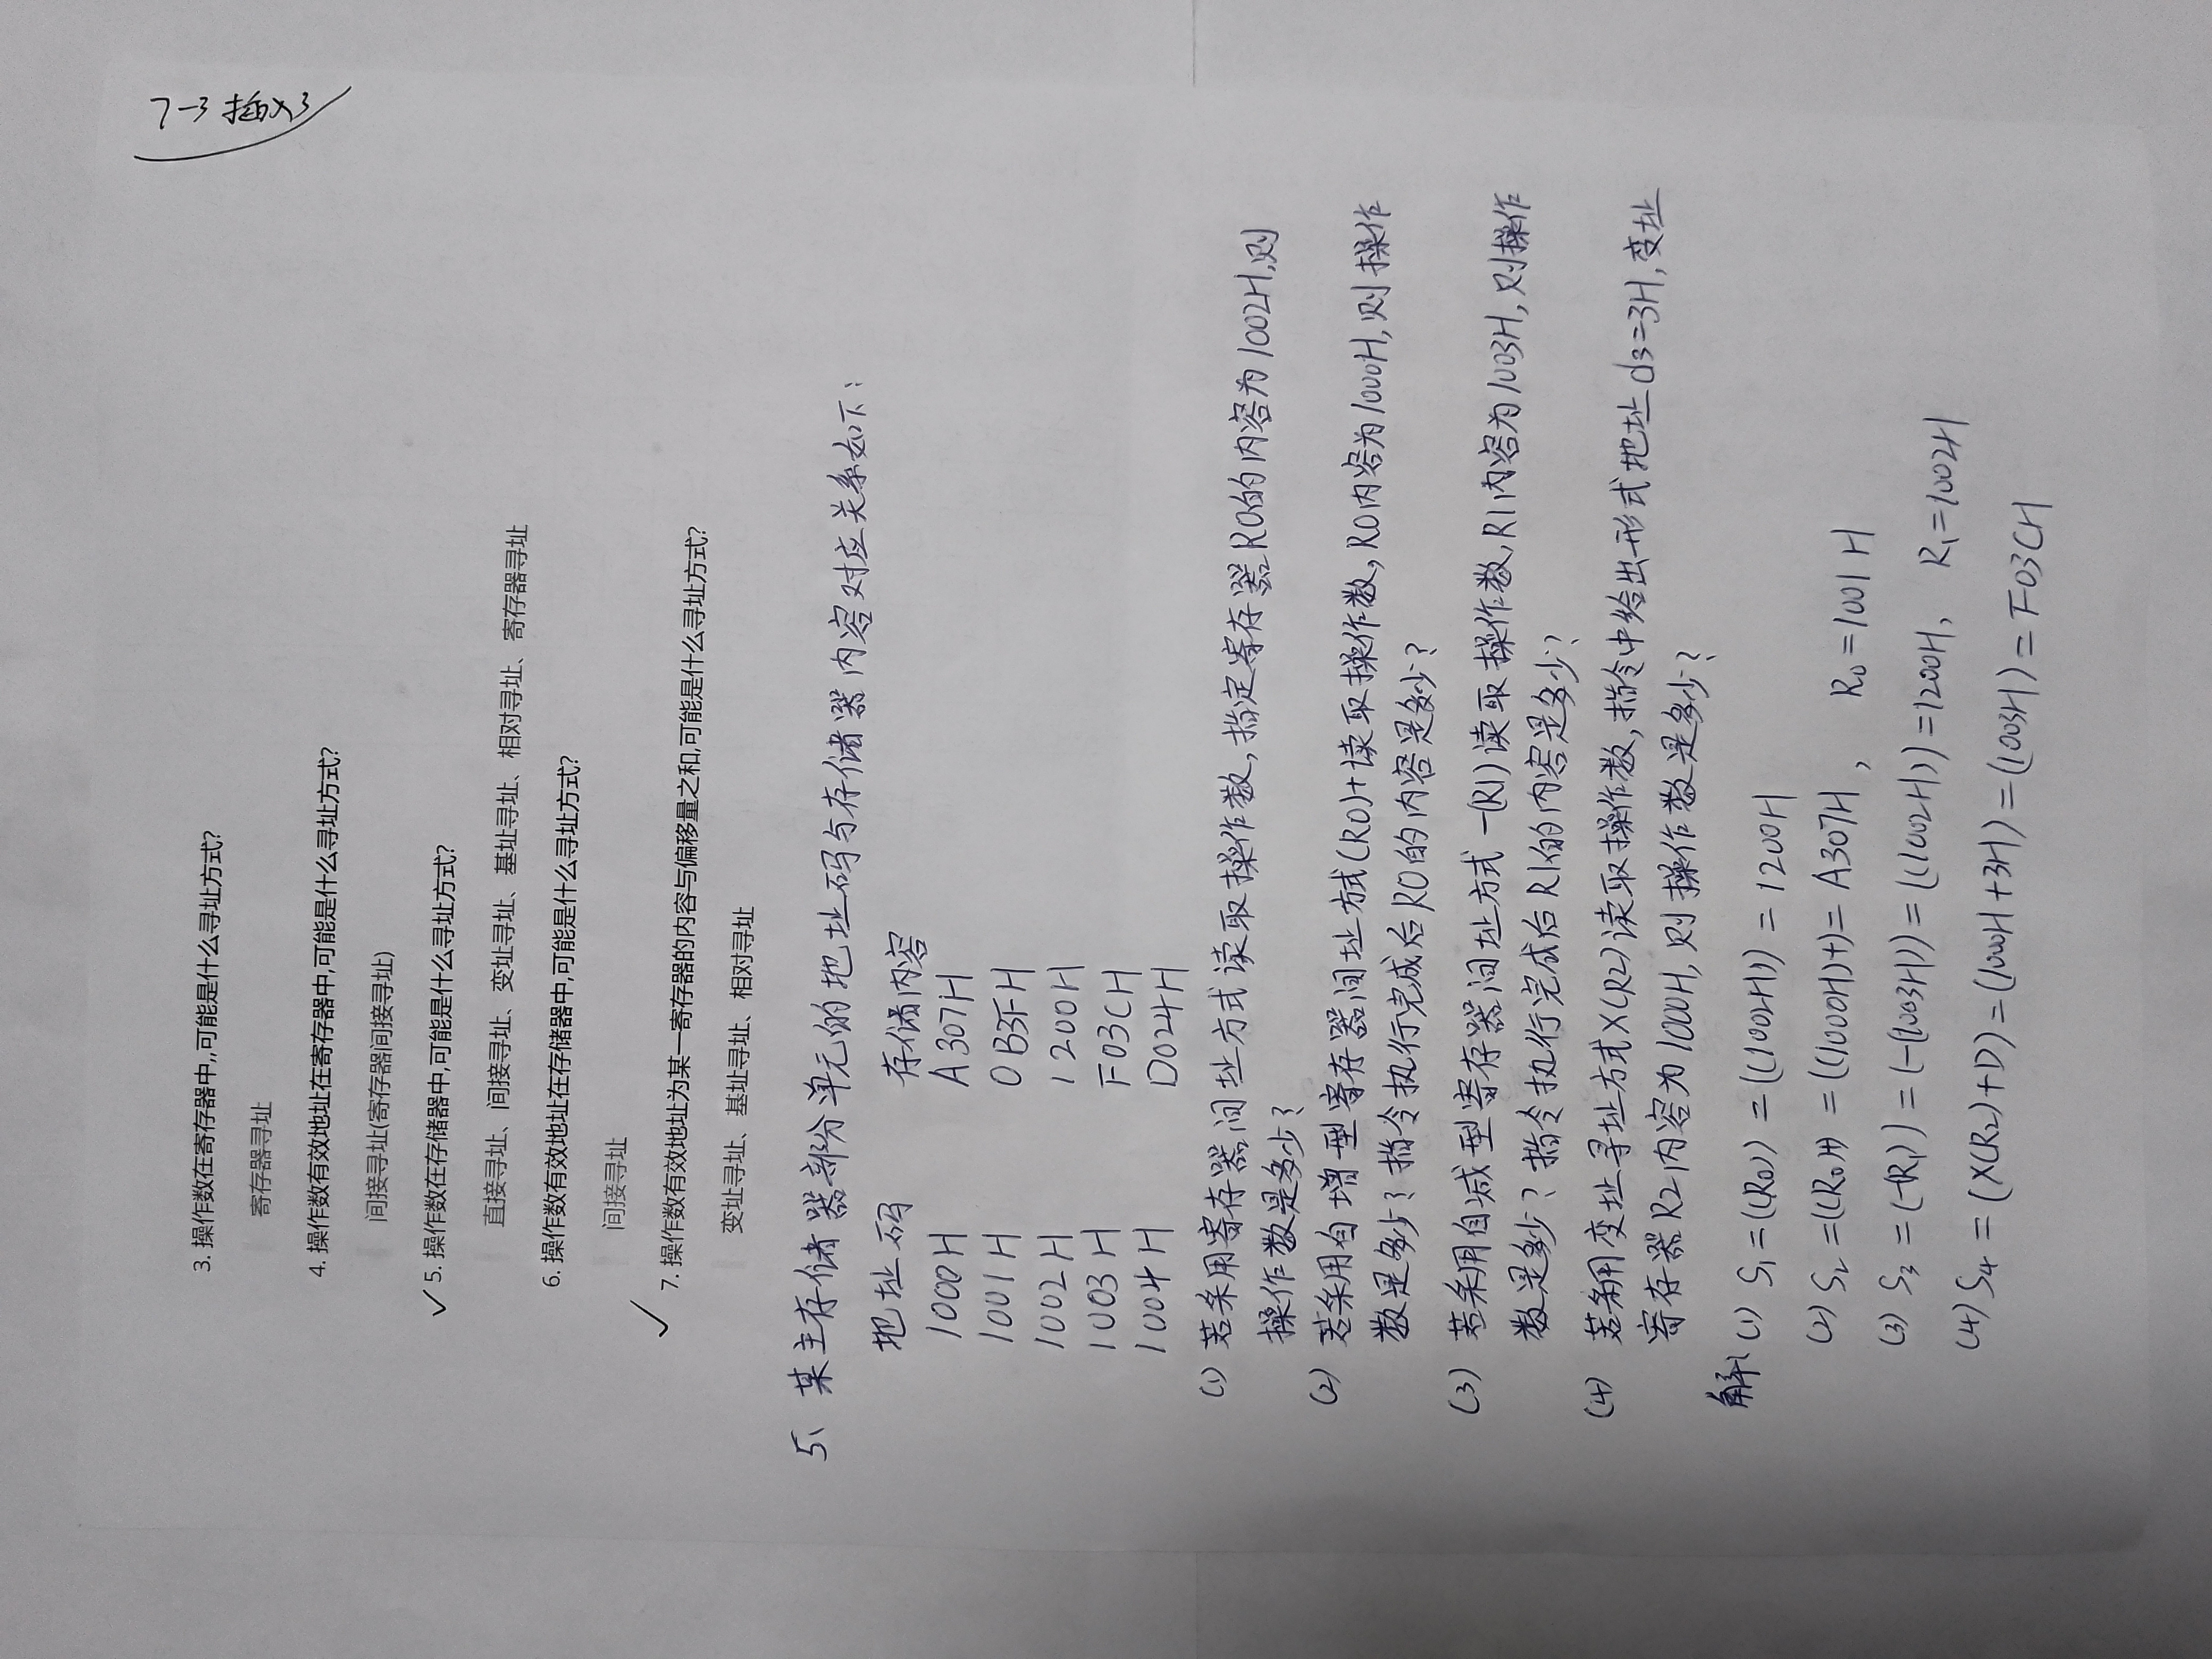 7-3插入3
3. 操作数在寄存器中,,可能是什么寻址方式?
寄存器寻址
4. 操作数有效地址在寄存器中,可能是什么寻址方式?
间接寻址(寄存器间接寻址)
✓ 5. 操作数在存储器中,可能是什么寻址方式?
直接寻址、间接寻址、变址寻址、基址寻址、相对寻址、寄存器寻址
6. 操作数有效地址在存储器中,可能是什么寻址方式?
间接寻址
✓ 7. 操作数有效地址为某一寄存器的内容与偏移量之和,可能是什么寻址方式?
变址寻址、基址寻址、相对寻址
5、某主存储器部分单元的地址码与存储器内容对应关系如下:
地址码 存储内容
1000H A307H
1001H 0B3FH
1002H 1200H
1003H F03CH
1004H D024H
(1) 若采用寄存器间址方式读取操作数,指定寄存器R0的内容为1002H,则
操作数是多少?
(2) 若采用自增型寄存器间址方式(R0)+读取操作数,R0内容为1000H,则操作
数是多少?指令执行完成后R0的内容是多少?
(3) 若采用自减型寄存器间址方式-(R1)读取操作数,R1内容为1003H,则操作
数是多少?指令执行完成后R1的内容是多少?
(4) 若采用变址寻址方式X(R2)读取操作数,指令中给出形式地址d3=3H,变址
寄存器R2内容为1000H,则操作数是多少?
解: (1) S₁=((R₀))=((1002H))=1200H
(2) S₂=((R₀)+)=((1000H)+)=A307H, R₀=1001H
(3) S₃=(-(R₁))=(-(1003H))=((1002H))=1200H, R₁=1002H
(4) S₄=(X(R₂)+D)=(1000H+3H)=(1003H)=F03CH